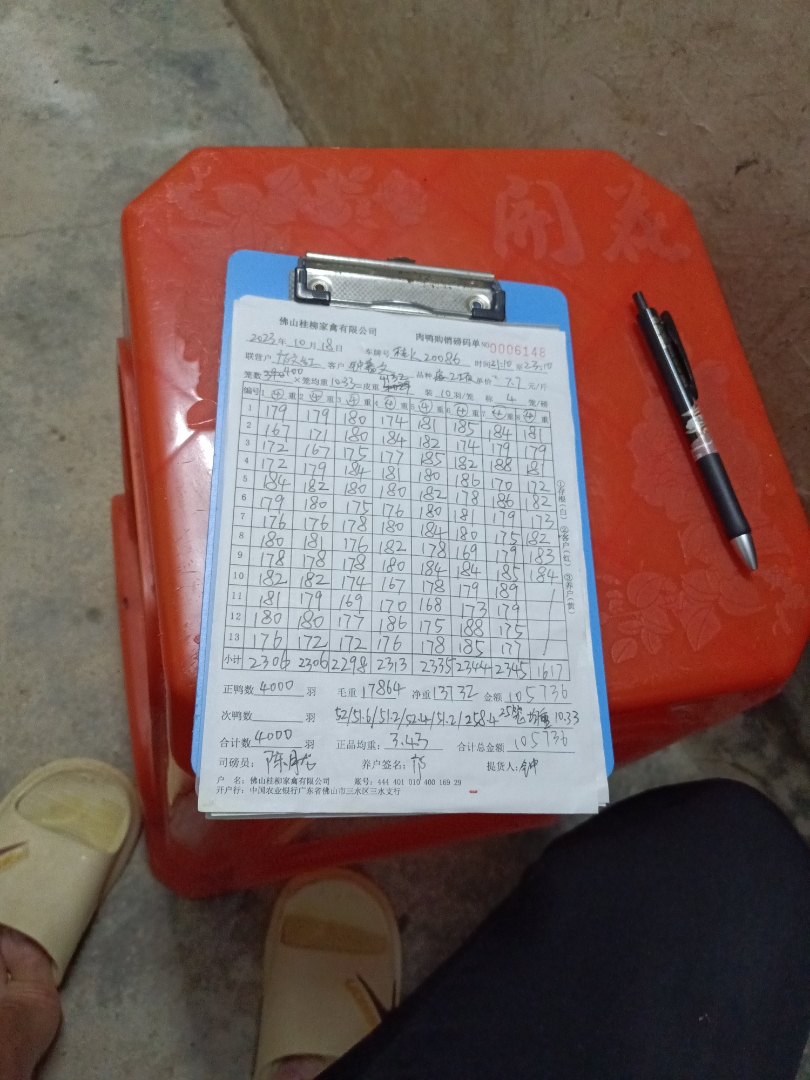 开花
佛山桂柳家禽有限公司 肉鸭购销磅码单 NO 0006148
2023年10月18日 车牌号 20086 时间21:10 23:10
联营户 客户 品种 单价 7.7 元/斤
笼数 400 ×笼均重 10.33=皮重 4132 装 10 羽/笼 称 4 笼/磅
编号 1 ④ 重 2 ④ 重 3 ④ 重 4 ④ 重 5 ④ 重 6 ④ 重 7 ④ 重 8 ④ 重
1 179 179 180 174 181 185 184 181
2 167 171 180 184 182 174 179 179
3 172 167 175 177 185 182 188 181
4 172 179 184 181 180 186 170 172
5 184 182 180 180 182 178 186 182
6 179 180 175 176 180 181 179 173
7 176 176 178 180 184 180 175 182
8 180 181 176 182 178 169 179 183
9 178 178 178 180 184 184 185 184
10 182 182 174 167 178 179 189
11 181 179 169 170 168 173 179
12 180 180 177 186 175 188 175
13 176 172 172 176 178 185 177
小计 2306 2306 2298 2313 2335 2344 2345 1617
①存根(白) ②客户(红) ③养户(黄)
正鸭数 4000 羽 毛重 17864 净重 13732 金额 105736
次鸭数 羽 52/51.6/51.2/52.4/51.2/258.4 25笼 均重 10.33
合计数 4000 羽 正品均重: 3.43 合计总金额 105736
司磅员: 养户签名: 提货人: 钟
户 名: 佛山桂柳家禽有限公司 账号: 444 401 010 400 169 29
开户行: 中国农业银行广东省佛山市三水区三水支行